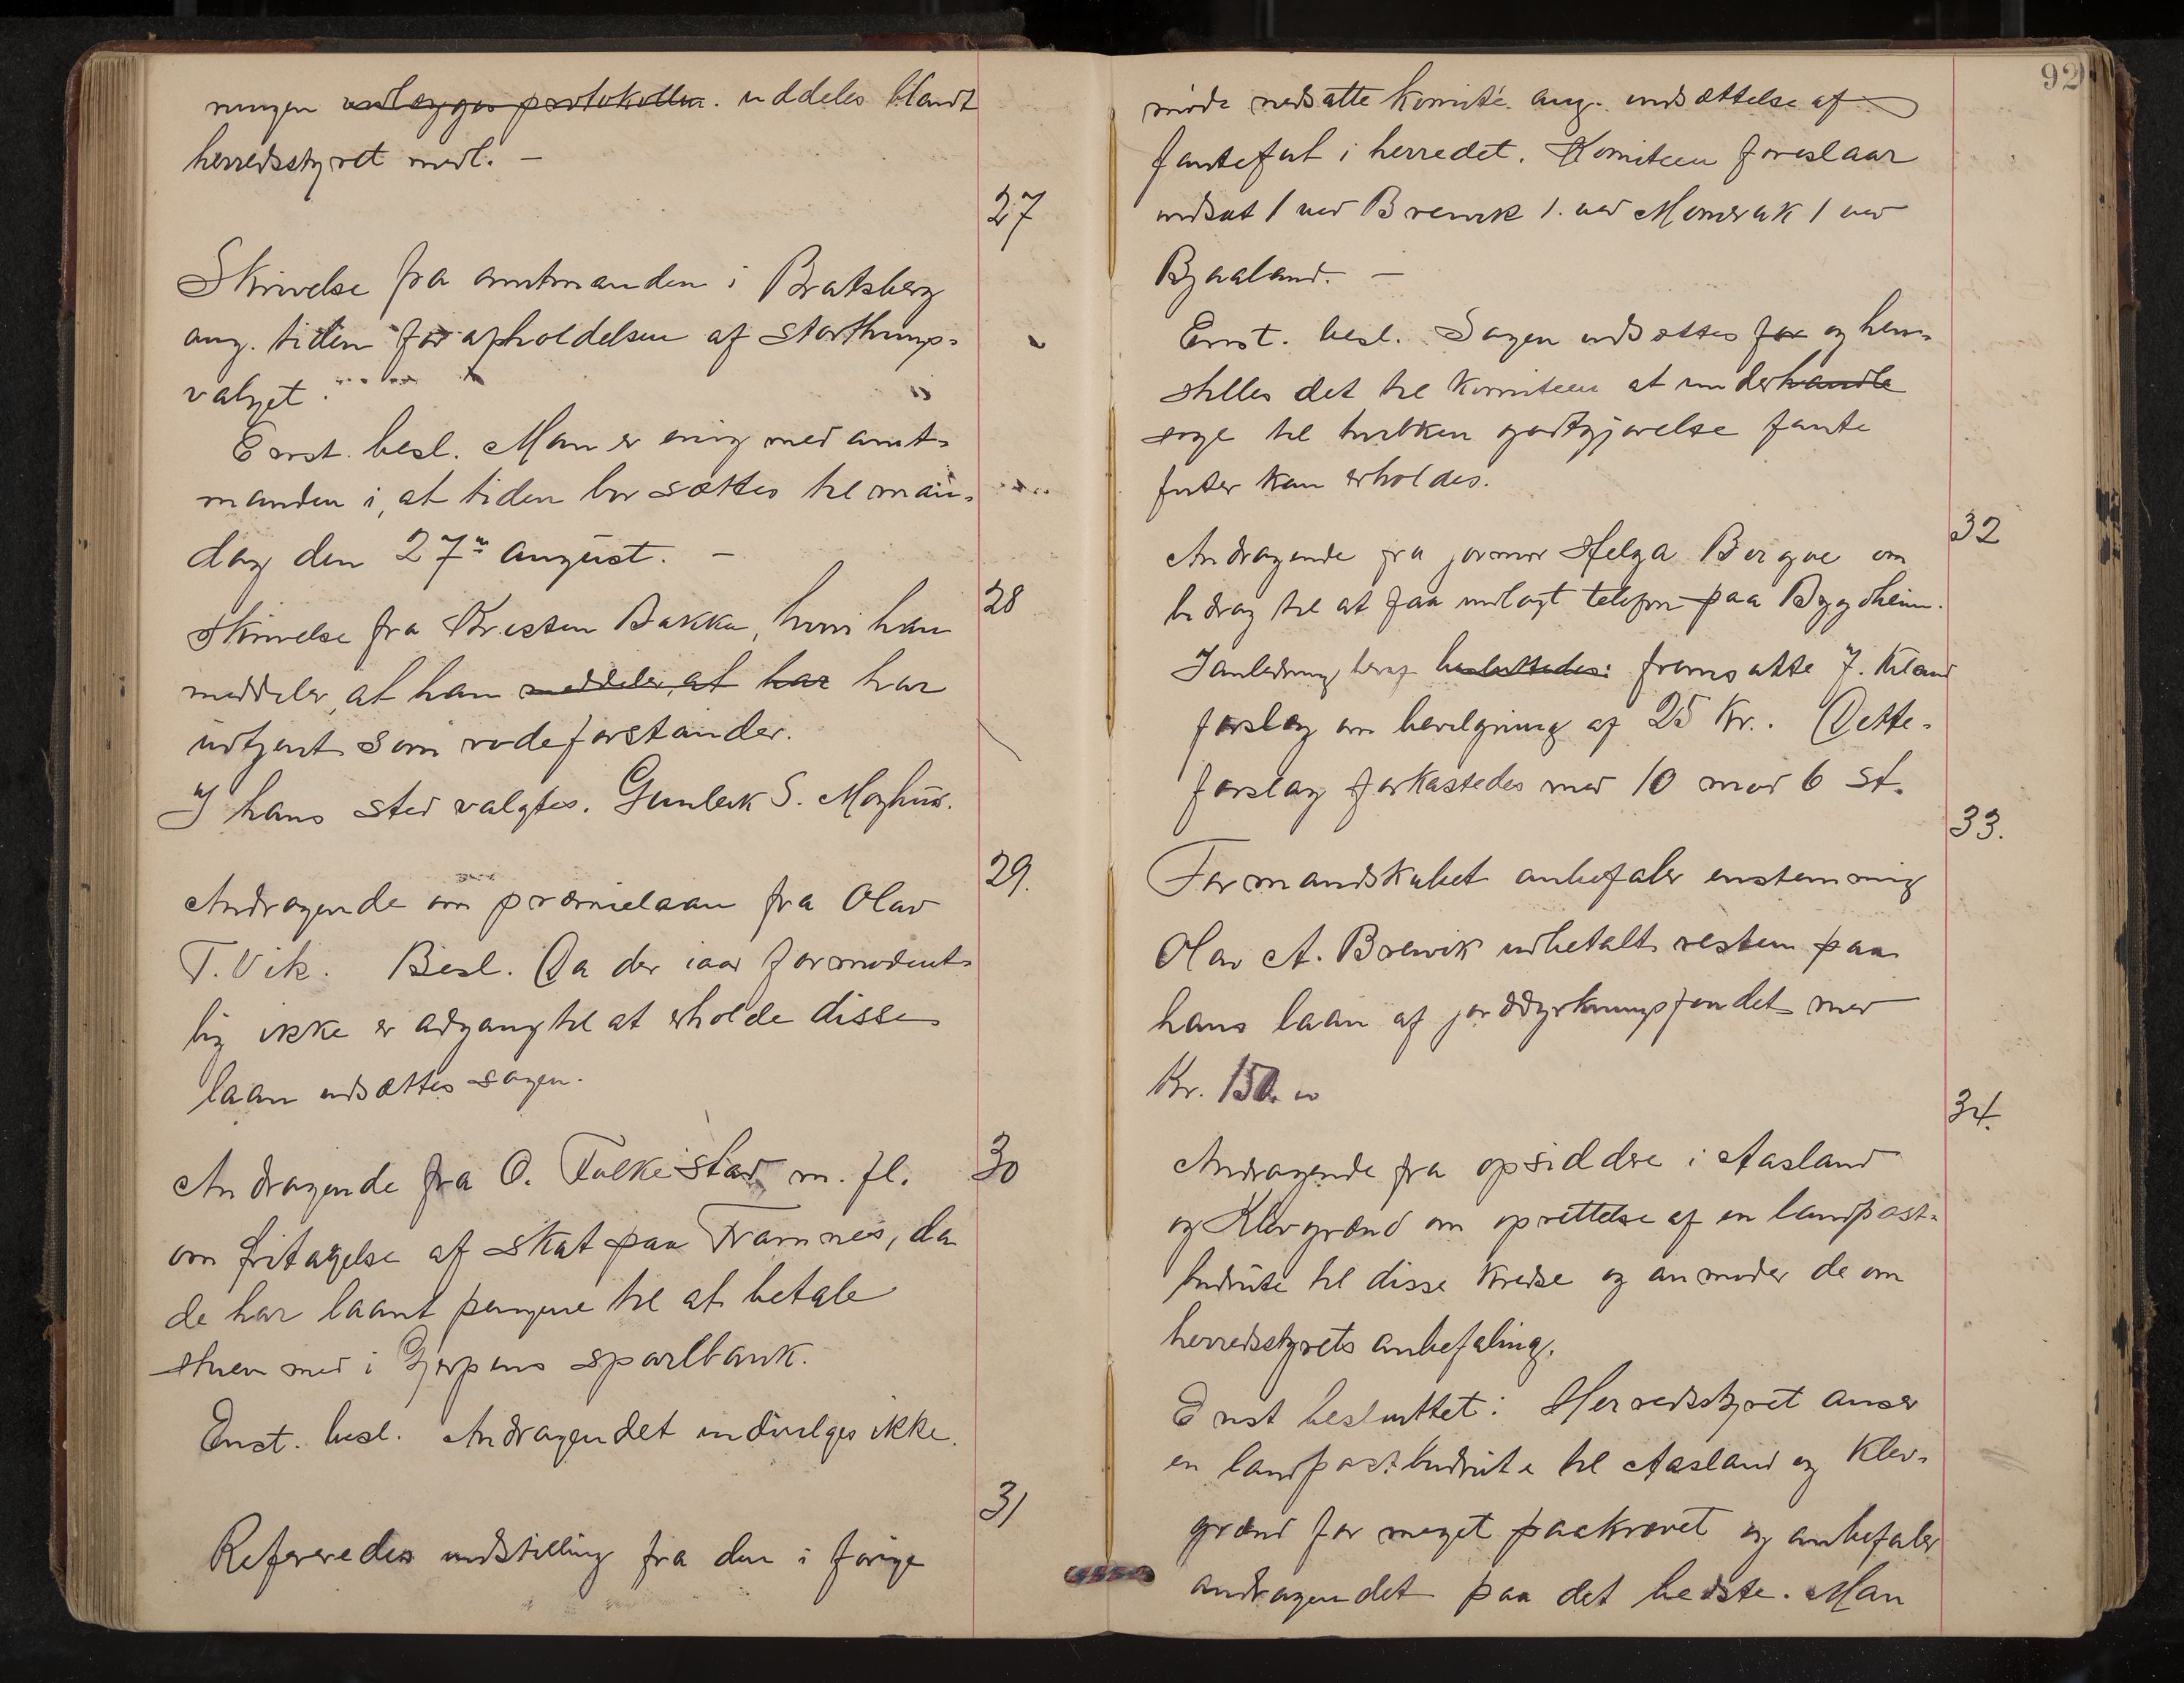 ningen vedlægges protokollen. uddeles blandt
herredsstyret medl. –
27
Skrivelse fra amtmanden i Bratsberg
ang. tiden for afholdelsen af storthings-
valget.
Enst. besl. Man er enig med amt-
manden i, at tiden bør sættes til man-
dag den 27n august. –
28
Skrivelse fra Kristen Bakka, hvori han
meddeler, at han meddeler, at har har
udtjent som rodeforstander.
I hans sted valgtes. Gunleik S. Moghus.
29.
Andragende om præmielaan fra Olav
T. Vik. Besl. Da der iaar formodent-
lig ikke er adgang til at erholde disse
laan udsættes sagen.
30
Andragende fra O. Folkestad m. fl.
om fritagelse af skat paa Framnes, da
de har laant pengene til at betale
med i Gjerpens sparebank.
Enst. besl. Andragendet indvilges ikke.
31
Refereredes indstilling fra den i forige
92
møde nedsatte komité ang. indsættelse af
fantefut i herredet. Komiteen foreslaar
indsat 1 ved Brewik 1. ved Momrak 1 ved
Bjaaland. –
Enst. besl. Sagen udsættes for og hen-
stilles det til komiteen at underhandle
søge til hvilken godtgjørelse fante
futer kan erholdes.
32
Andragende fra jormor Helga Borgje om
bidrag til at faa indlagt telefon paa Bygdheim.
I anledning heraf besluttedes: fremsatte J. Kiland
forslag om bevilgning af 25 kr.. Dette
forslag forkastedes med 10 mod 6 st.
33.
Formandskabet anbefaler enstemmig
Olav A. Brewik udbetalt resten paa
hans laan af jorddyrkningsfondet med
Kr. 150.00
34.
Andragende fra opsiddere i Aasland
og Klevgrænd om oprettelse af en landpost-
budrute til disse kredse og anmoder de om
herredsstyrets anbefaling.
Enst besluttet: Herredsstyret anser
en landpostbudrute til Aasland og Klev-
grænd for meget paakrævet og anbefaler
andragendet paa det bedste. Man